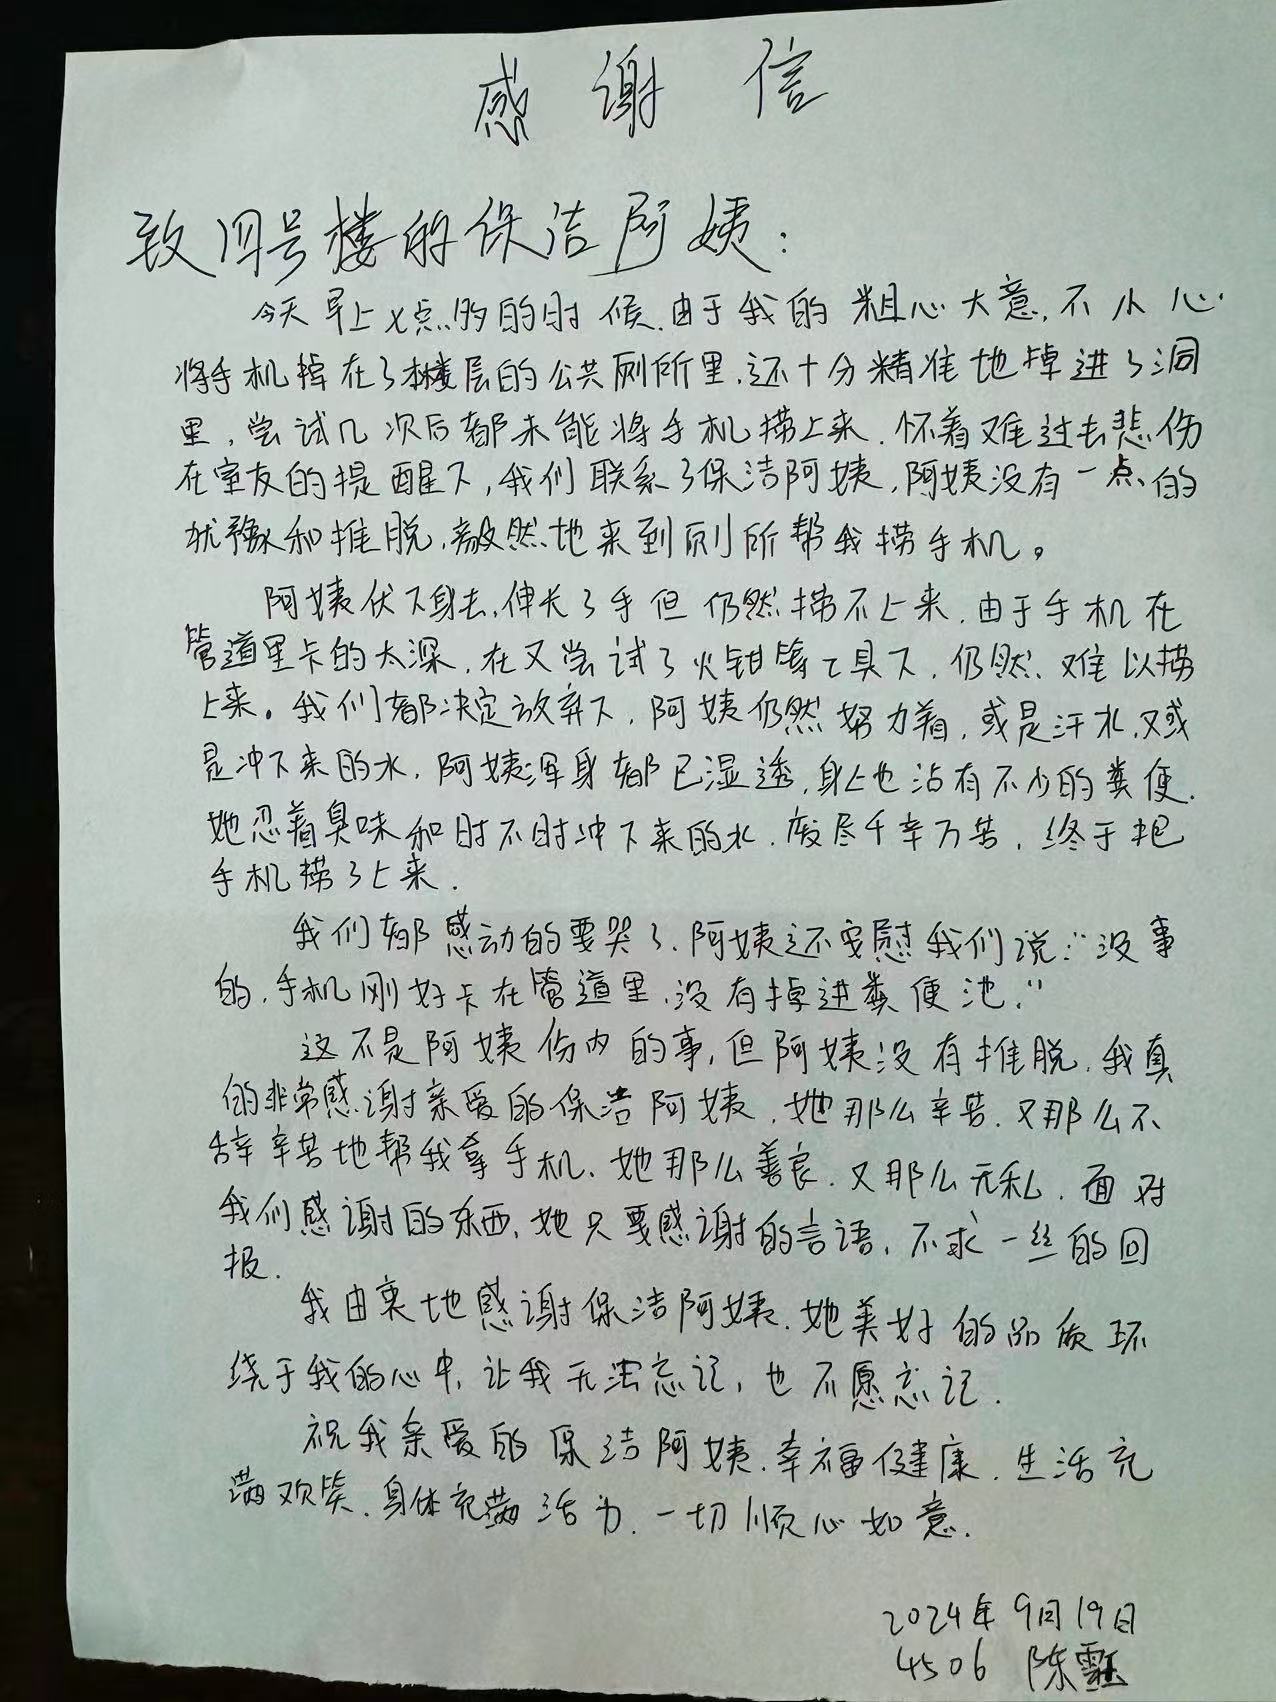 感谢信
致四号楼的保洁阿姨:
今天早上七点多的时候,由于我的粗心大意,不小心
将手机掉在了本楼层的公共厕所里,还十分精准地掉进了洞
里,尝试几次后都未能将手机捞上来,怀着难过去悲伤
在室友的提醒下,我们联系了保洁阿姨,阿姨没有一点的
犹豫和推脱,毅然地来到厕所帮我捞手机。
阿姨伏下身去,伸长了手但仍然捞不上来,由于手机在
管道里卡的太深,在又尝试了火钳等工具下,仍然难以捞
上来。我们都决定放弃下,阿姨仍然努力着,或是汗水,又或
是冲下来的水,阿姨浑身都已湿透,身上也沾有不少的粪便.
她忍着臭味和时不时冲下来的水,废尽千辛万苦,终于把
手机捞了上来.
我们都感动的要哭了,阿姨还安慰我们说:“没事
的,手机刚好卡在管道里,没有掉进粪便池.”
这不是阿姨份内的事,但阿姨没有推脱,我真
的非常感谢亲爱的保洁阿姨,她那么辛苦,又那么不
辞辛苦地帮我拿手机,她那么善良,又那么无私,面对
我们感谢的东西,她只要感谢的言语,不求一丝的回
报.
我由衷地感谢保洁阿姨,她美好的品质环
绕于我的心中,让我无法忘记,也不愿忘记.
祝我亲爱的保洁阿姨,幸福健康,生活充
满欢笑,身体充满活力,一切顺心如意.
2024年9月19日
4506 陈